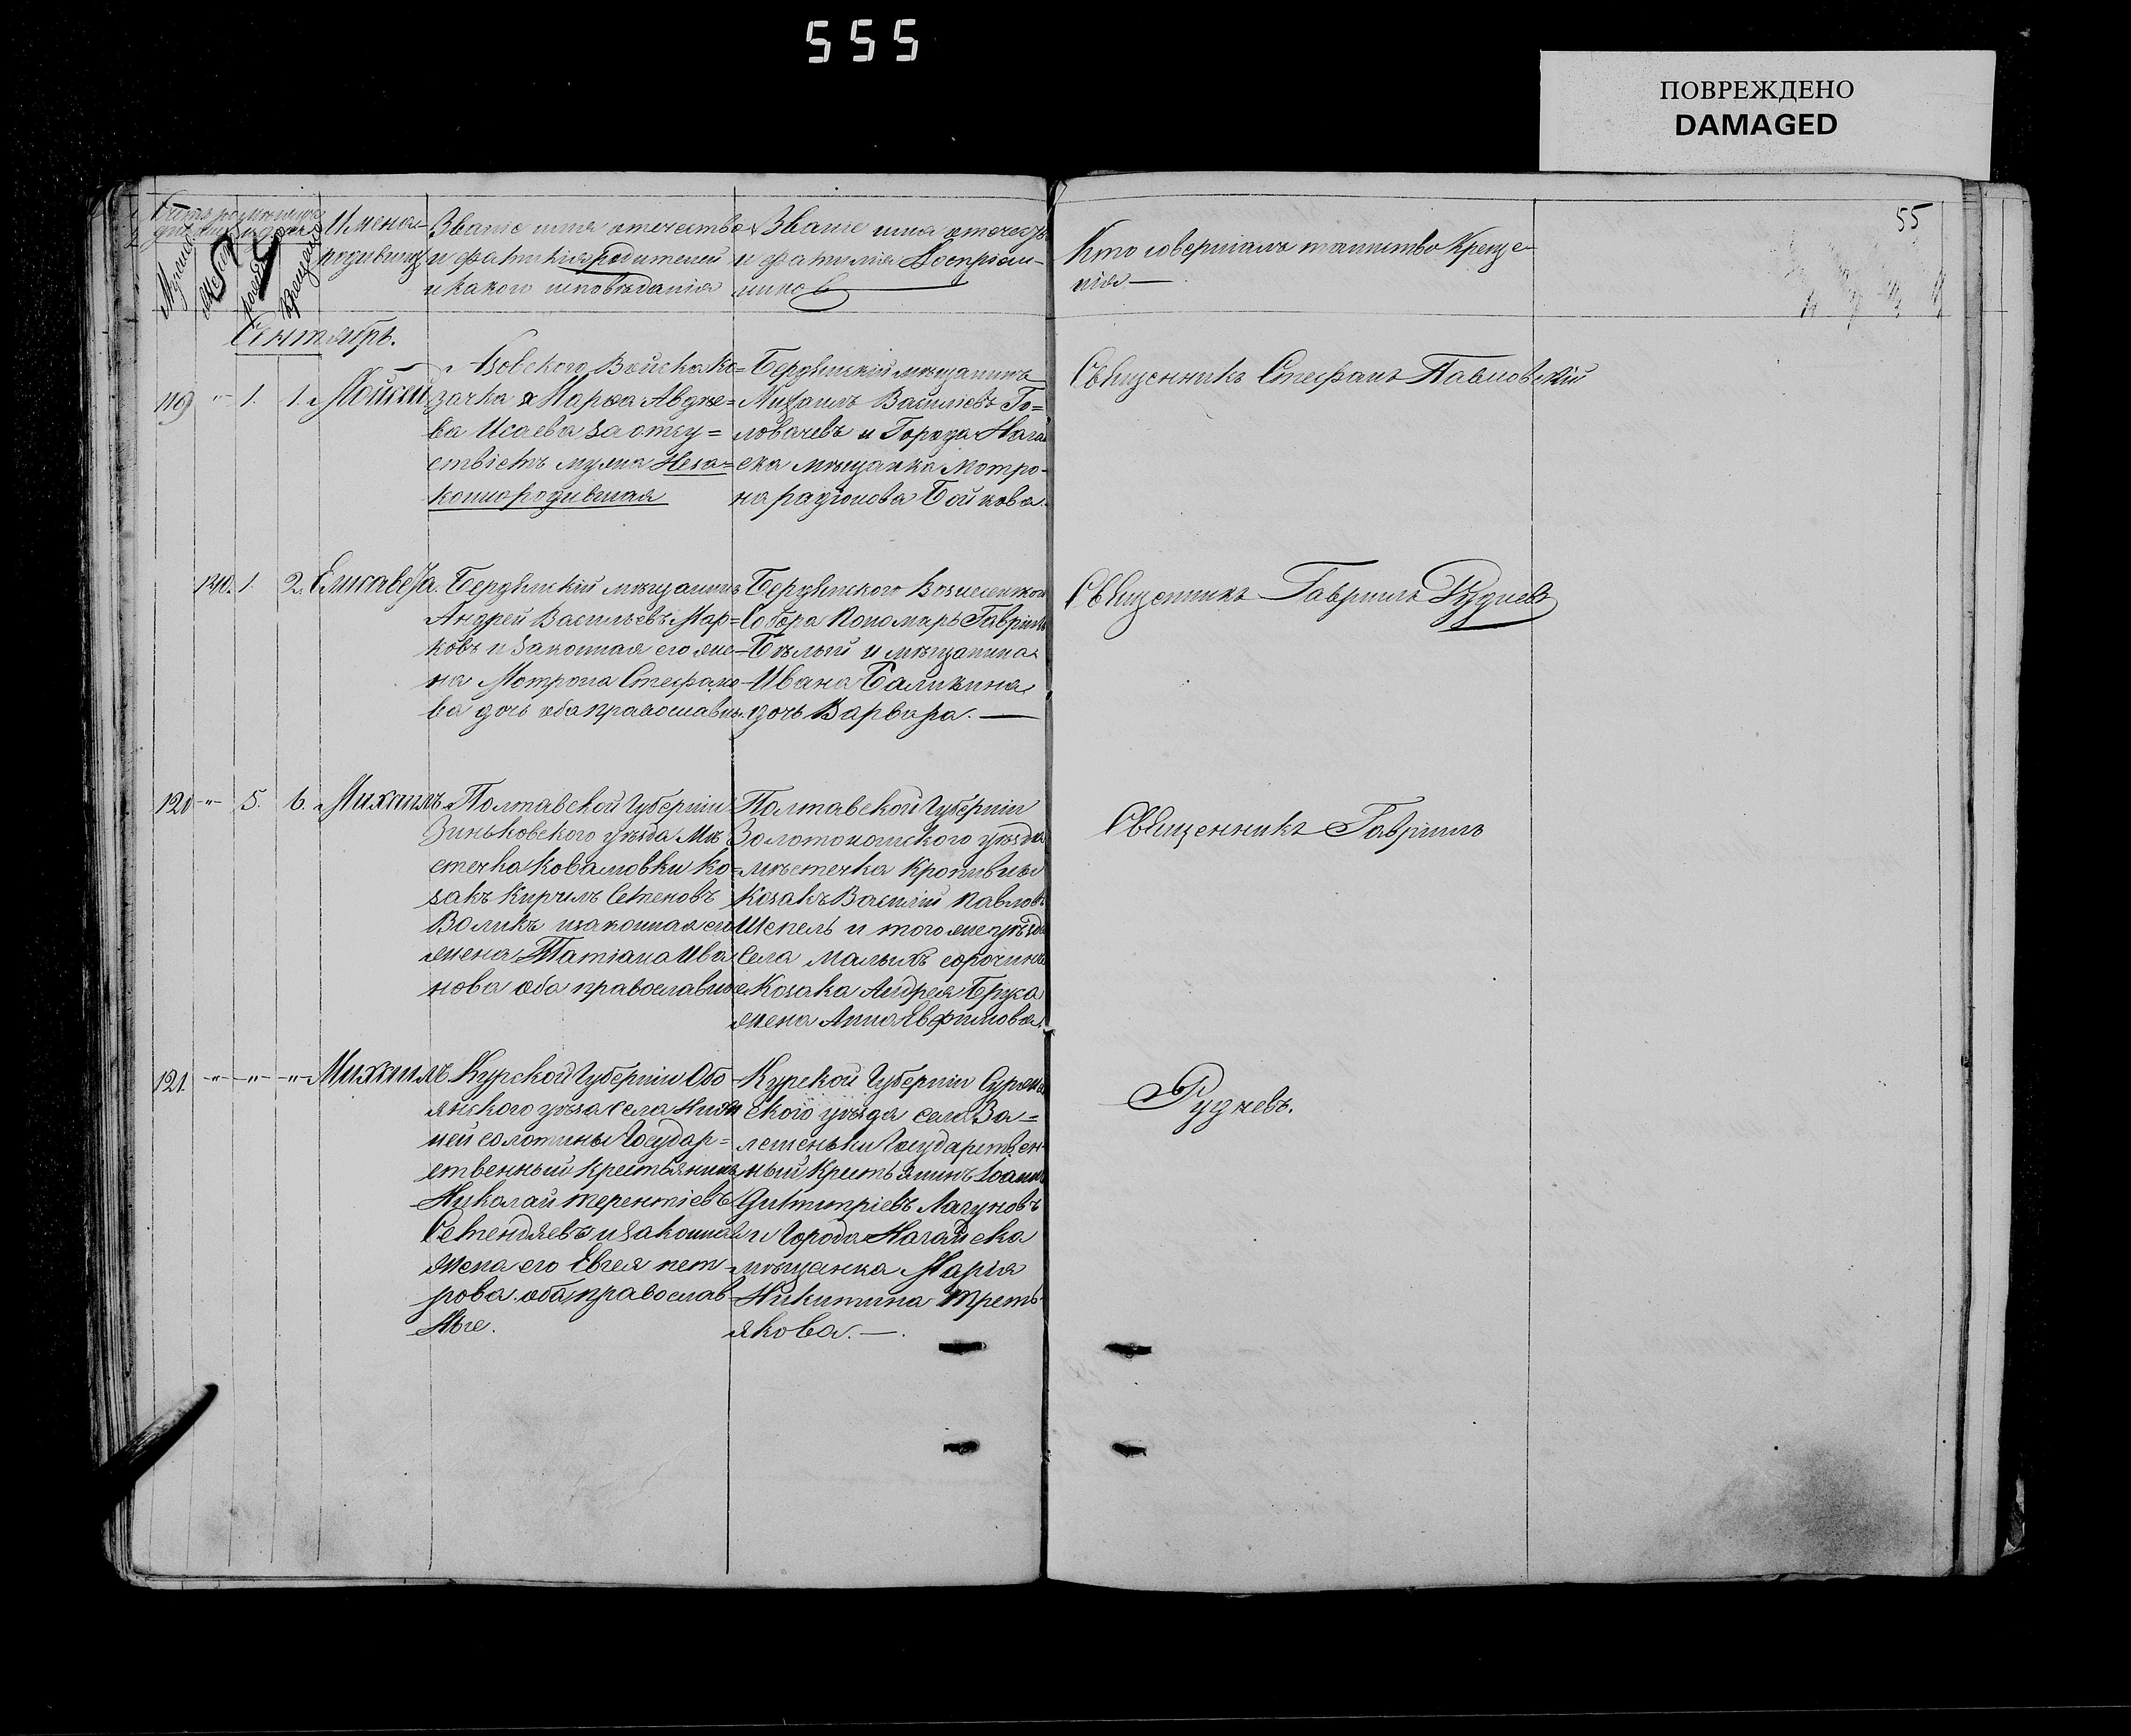 555
ПОВРЕЖДЕНО
DAMAGED
55
Имена
родившихся
Званіе имя отечество
и фамилія родителей
и какого исповѣданія
Званіе имя отечество
и фамилія Воспріем-
никовъ
Кто совершалъ таинство Креще-
нія —
Сентябрь.
119 " 1. 1. Мойсей
Азовскаго Войска Ко=
зачка Марѳа Авдѣе=
ва Исаева за отсу=
ствіемъ мужа Неза=
коннородившая
Бердянскій мѣщанинъ
Михаилъ Василіевъ Го=
ловачевъ и Города Нагай
ска мѣщанка Мотро-
на радіонова Бойкова.
Священникъ Стефанъ Павловскій
1. 2. Елисавета.
Бердянскій мѣщанинъ
Андрей Васильевъ Мар=
ковъ и Законная его же-
на Мотрона Стефано
ва дочь оба православн.
Бердянского Вознесенской
Собора Пономарь Гавріилъ
Бѣлый и мѣщанина
Ивана Баликина
дочь Варвара. —
Священникъ Гавриилъ Рудневъ
120 " 5. 6. Михаилъ
Полтавской Губерніи
Зиньковского уѣзда Мѣ
стечка Коваловки Ко-
закъ Кирилъ Семеновъ
Воликъ изаконная его
жена Татіана Ива
нова оба православные
Полтавской Губерніи
Золотоношского уѣзда
мѣстечка Кропивны
Козакъ Василій Павловъ
Шепель и того же уѣзда
села малыхъ сорочинъ
Козака Андрея Бруса
жена Анна Евфимова.
Священникъ Гавріилъ
121. " " " Михаилъ
Курской Губерніи Обо
янского уѣзда села Ниж
ней солотины Государ=
ственный крестьянинъ
Николай терентіевъ
Семендяевъ изаконная
жена его Евгея пет
рова оба православ
ные.
Курской Губерніи Суджан
ского уѣзда села За=
лешеньки Государствен
ный Крестьянинъ Іоаннъ
Димитріевъ Лагуновъ
и Города Нагайска
мѣщанка Марія
Никитина Треть
якова. —.
Рудневъ.